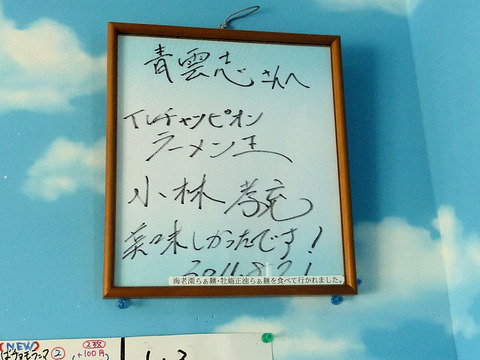 青雲志さんへ
TVチャンピオン
ラーメン王
小林孝充
美味しかったです!
2011.8.21
海老潮らぁ麺・牡蠣正油らぁ麺を食べて行かれました。
NEW
2回
+100円